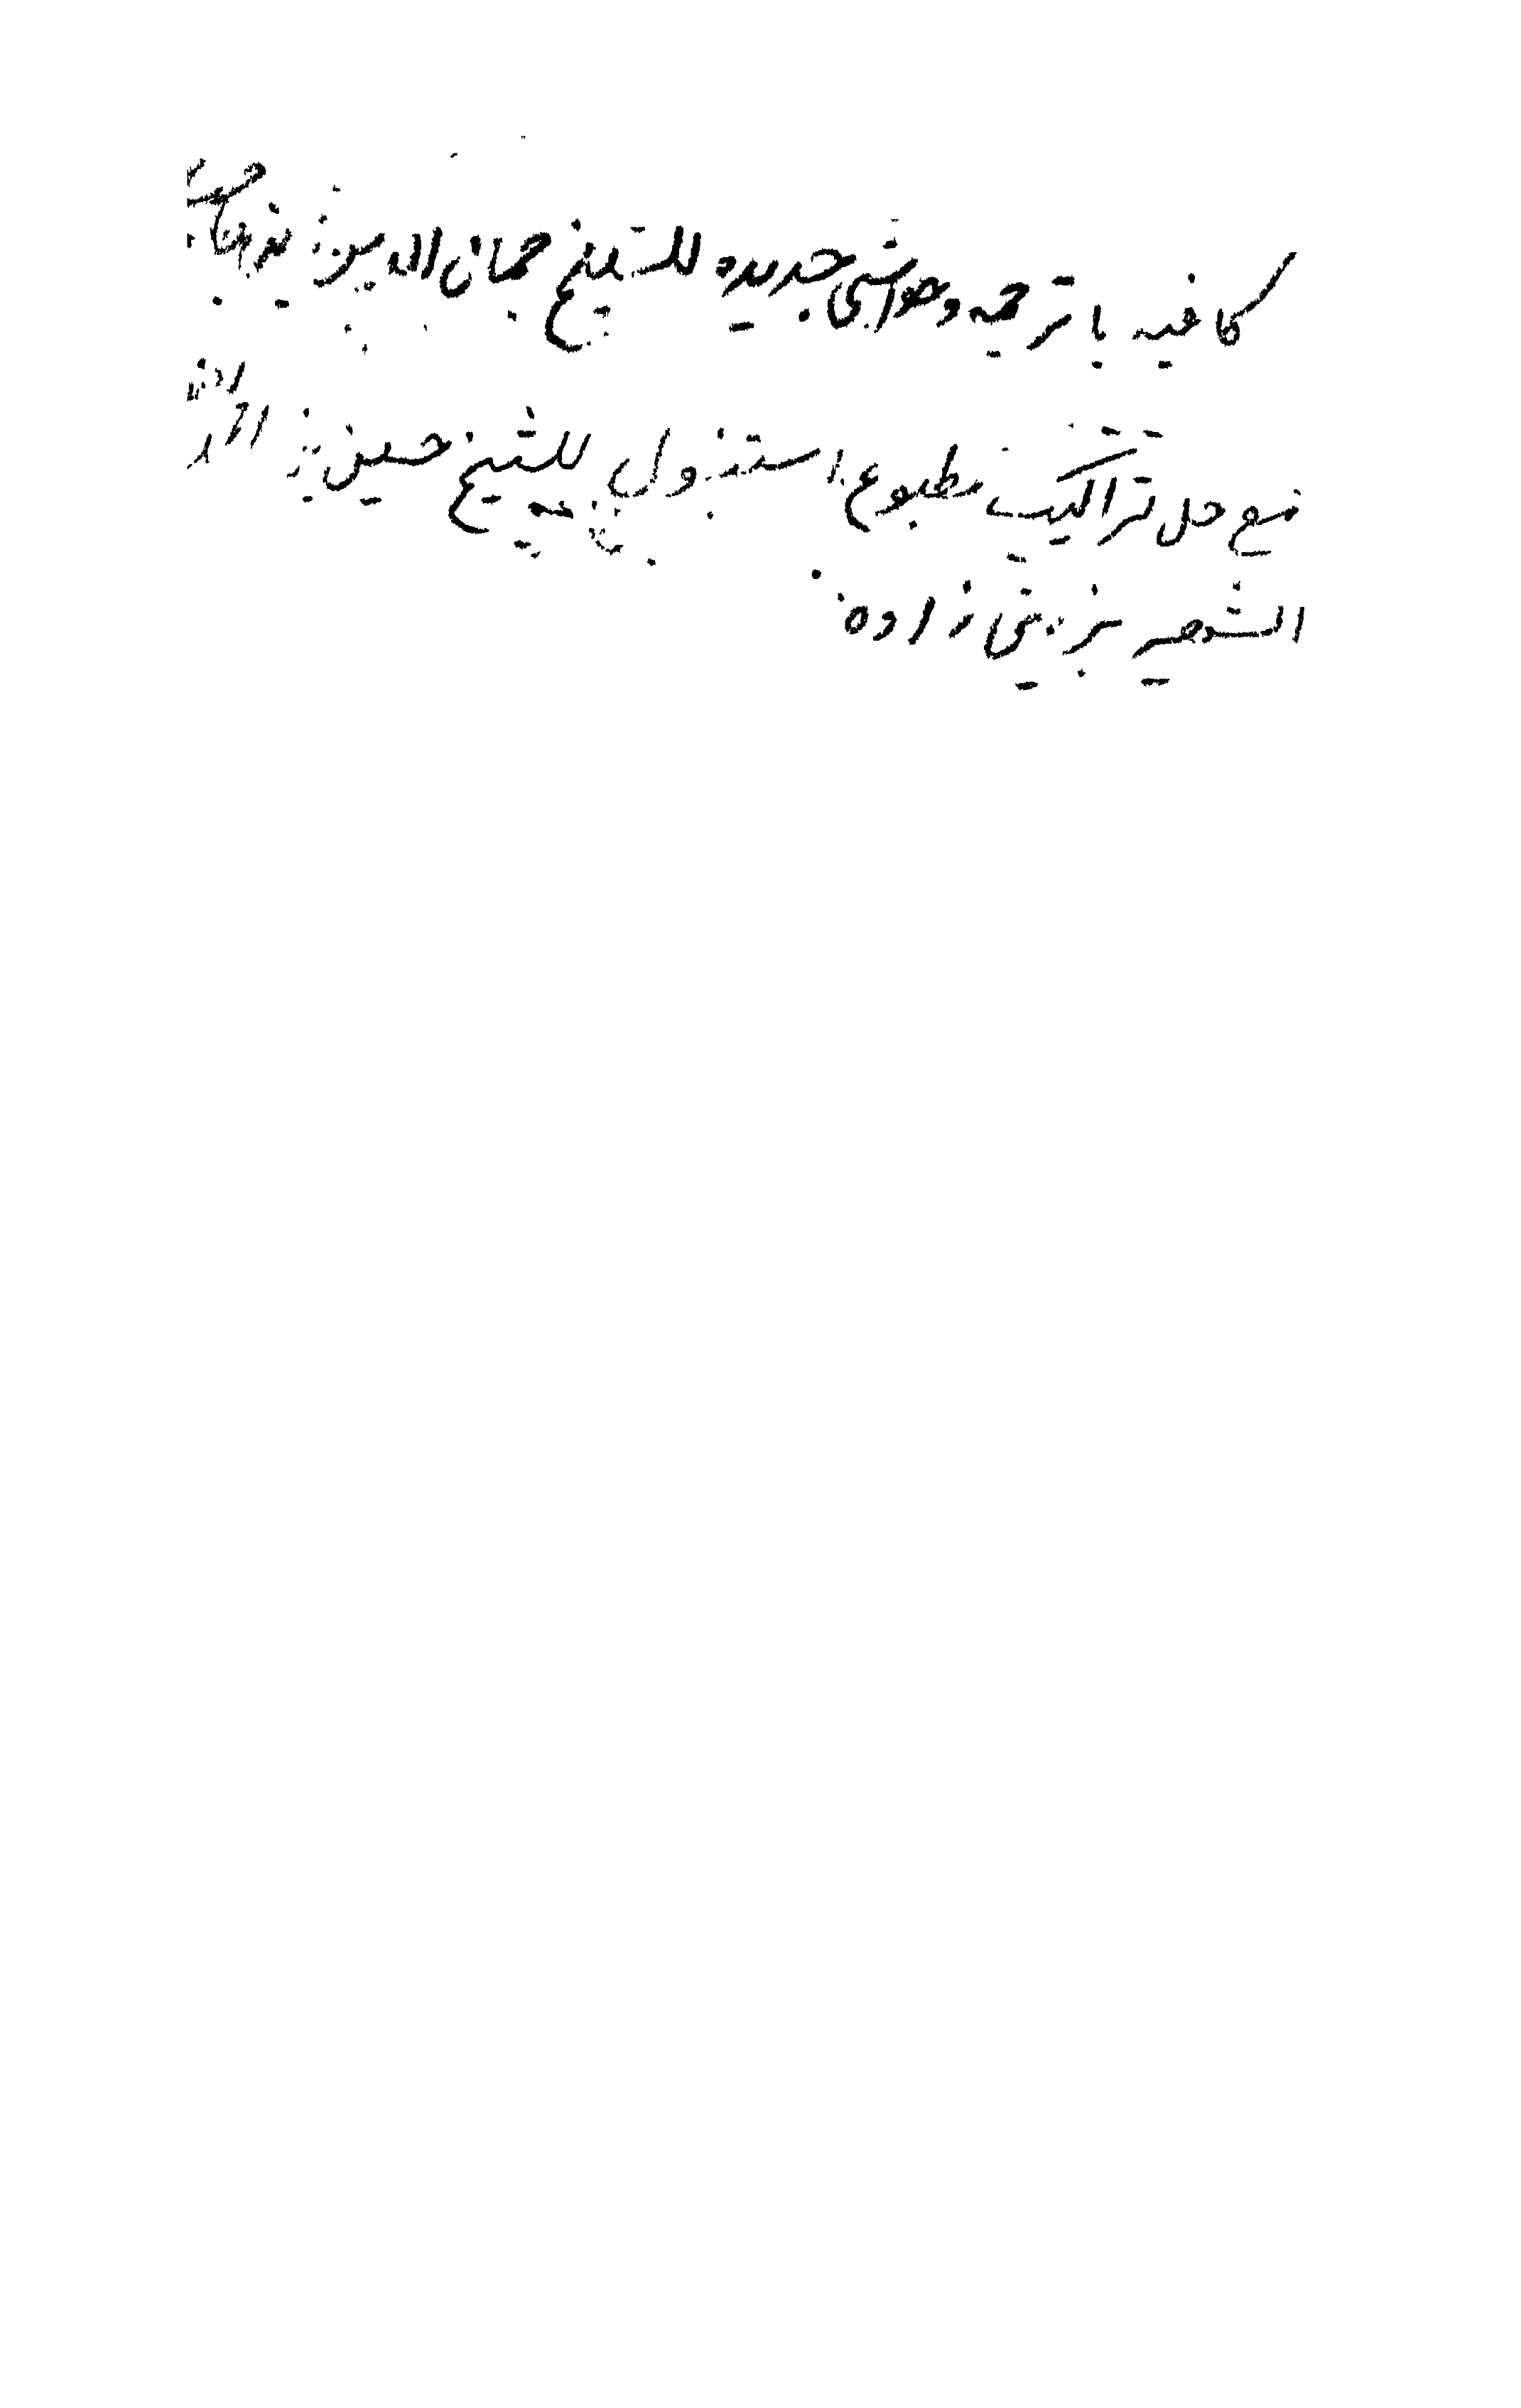 کافیه با ترجمه و حواشی جدیده للشیخ جمال الدین بن حاجب
مع حل تراکیب مطبوع استنبول للشیخ حسین بن احمد
الشهیر بزینی زاده